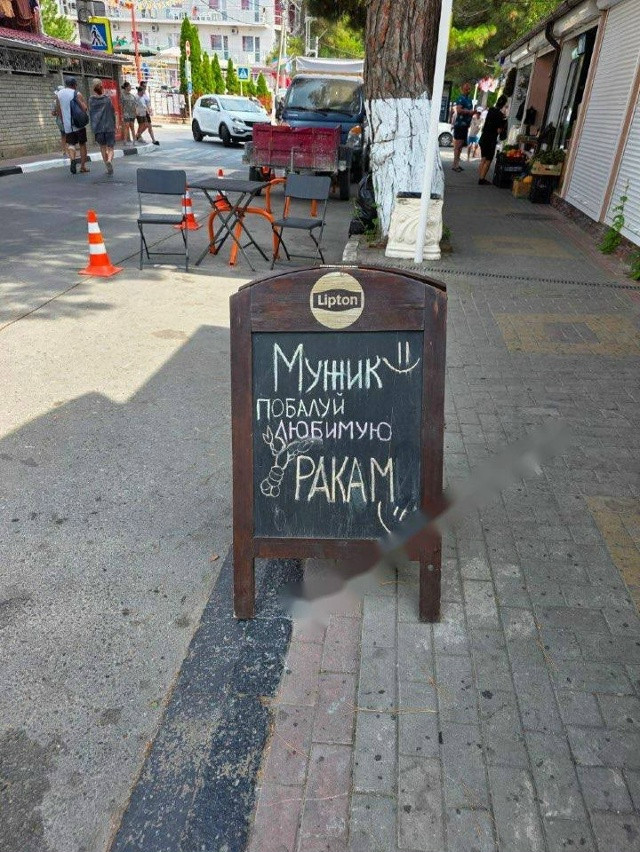 Lipton
Мужик
ПОБАЛУЙ
ЛЮБИМУЮ
РАКАМ